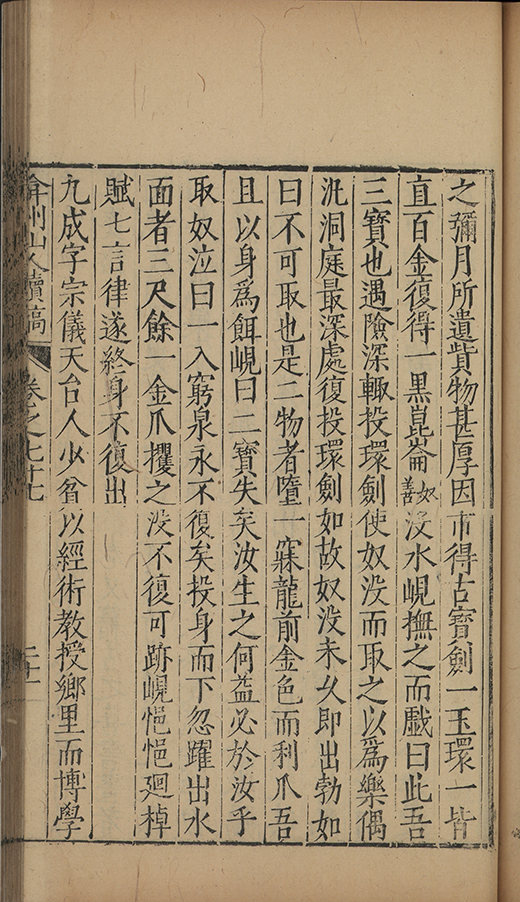 之彌月所遺貲物甚厚因市得古寶劍一玉環一皆
直百金復得一黒崑崙奴善沒水峴撫之而戲曰此吾
三寶也遇險深輙投環劍使奴没而取之以爲樂偶
汎洞庭最深處復投環劍如故奴没未乆即出勃如
曰不可取也是二物者墮一寐龍前金色而利爪吾
且以身爲餌峴曰二寶失矣汝生之何益必於汝乎
取奴泣曰一入窮泉永不復矣投身而下忽躍出水
面者三尺餘一金爪攫之没不復可跡峴悒悒廻棹
賦七言律遂終身不復出
九成字宗儀天台人少貧以經術教授鄉里而博學
弇州山人續稿 卷之七十七 二十一